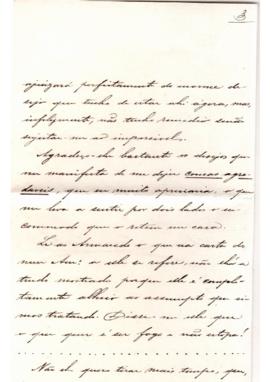 3
ajuizará perfeitamente do enorme de-
sejo que tenho de estar ahi agora, mas,
infelizmente, não tenho remedio senão
sujeitar-me ao impossivel.
Agradeço-lhe bastante os desejos que
me manifesta de me dizer cousas agra-
daveis, que eu muito apreciaria, o que
me leva a sentir por dois lados o in-
commodo que o retem em casa.
Li ao Armando o que na carta do
meu Am.º a elle se refere, não lh'a
tendo mostrado porque elle é comple-
tamente alheio ao assumpto que vi-
mos tratando. Disse-me elle que
o que quer é ser fogo e não estopa!
Não lh'e quero tirar mais tempo, que,